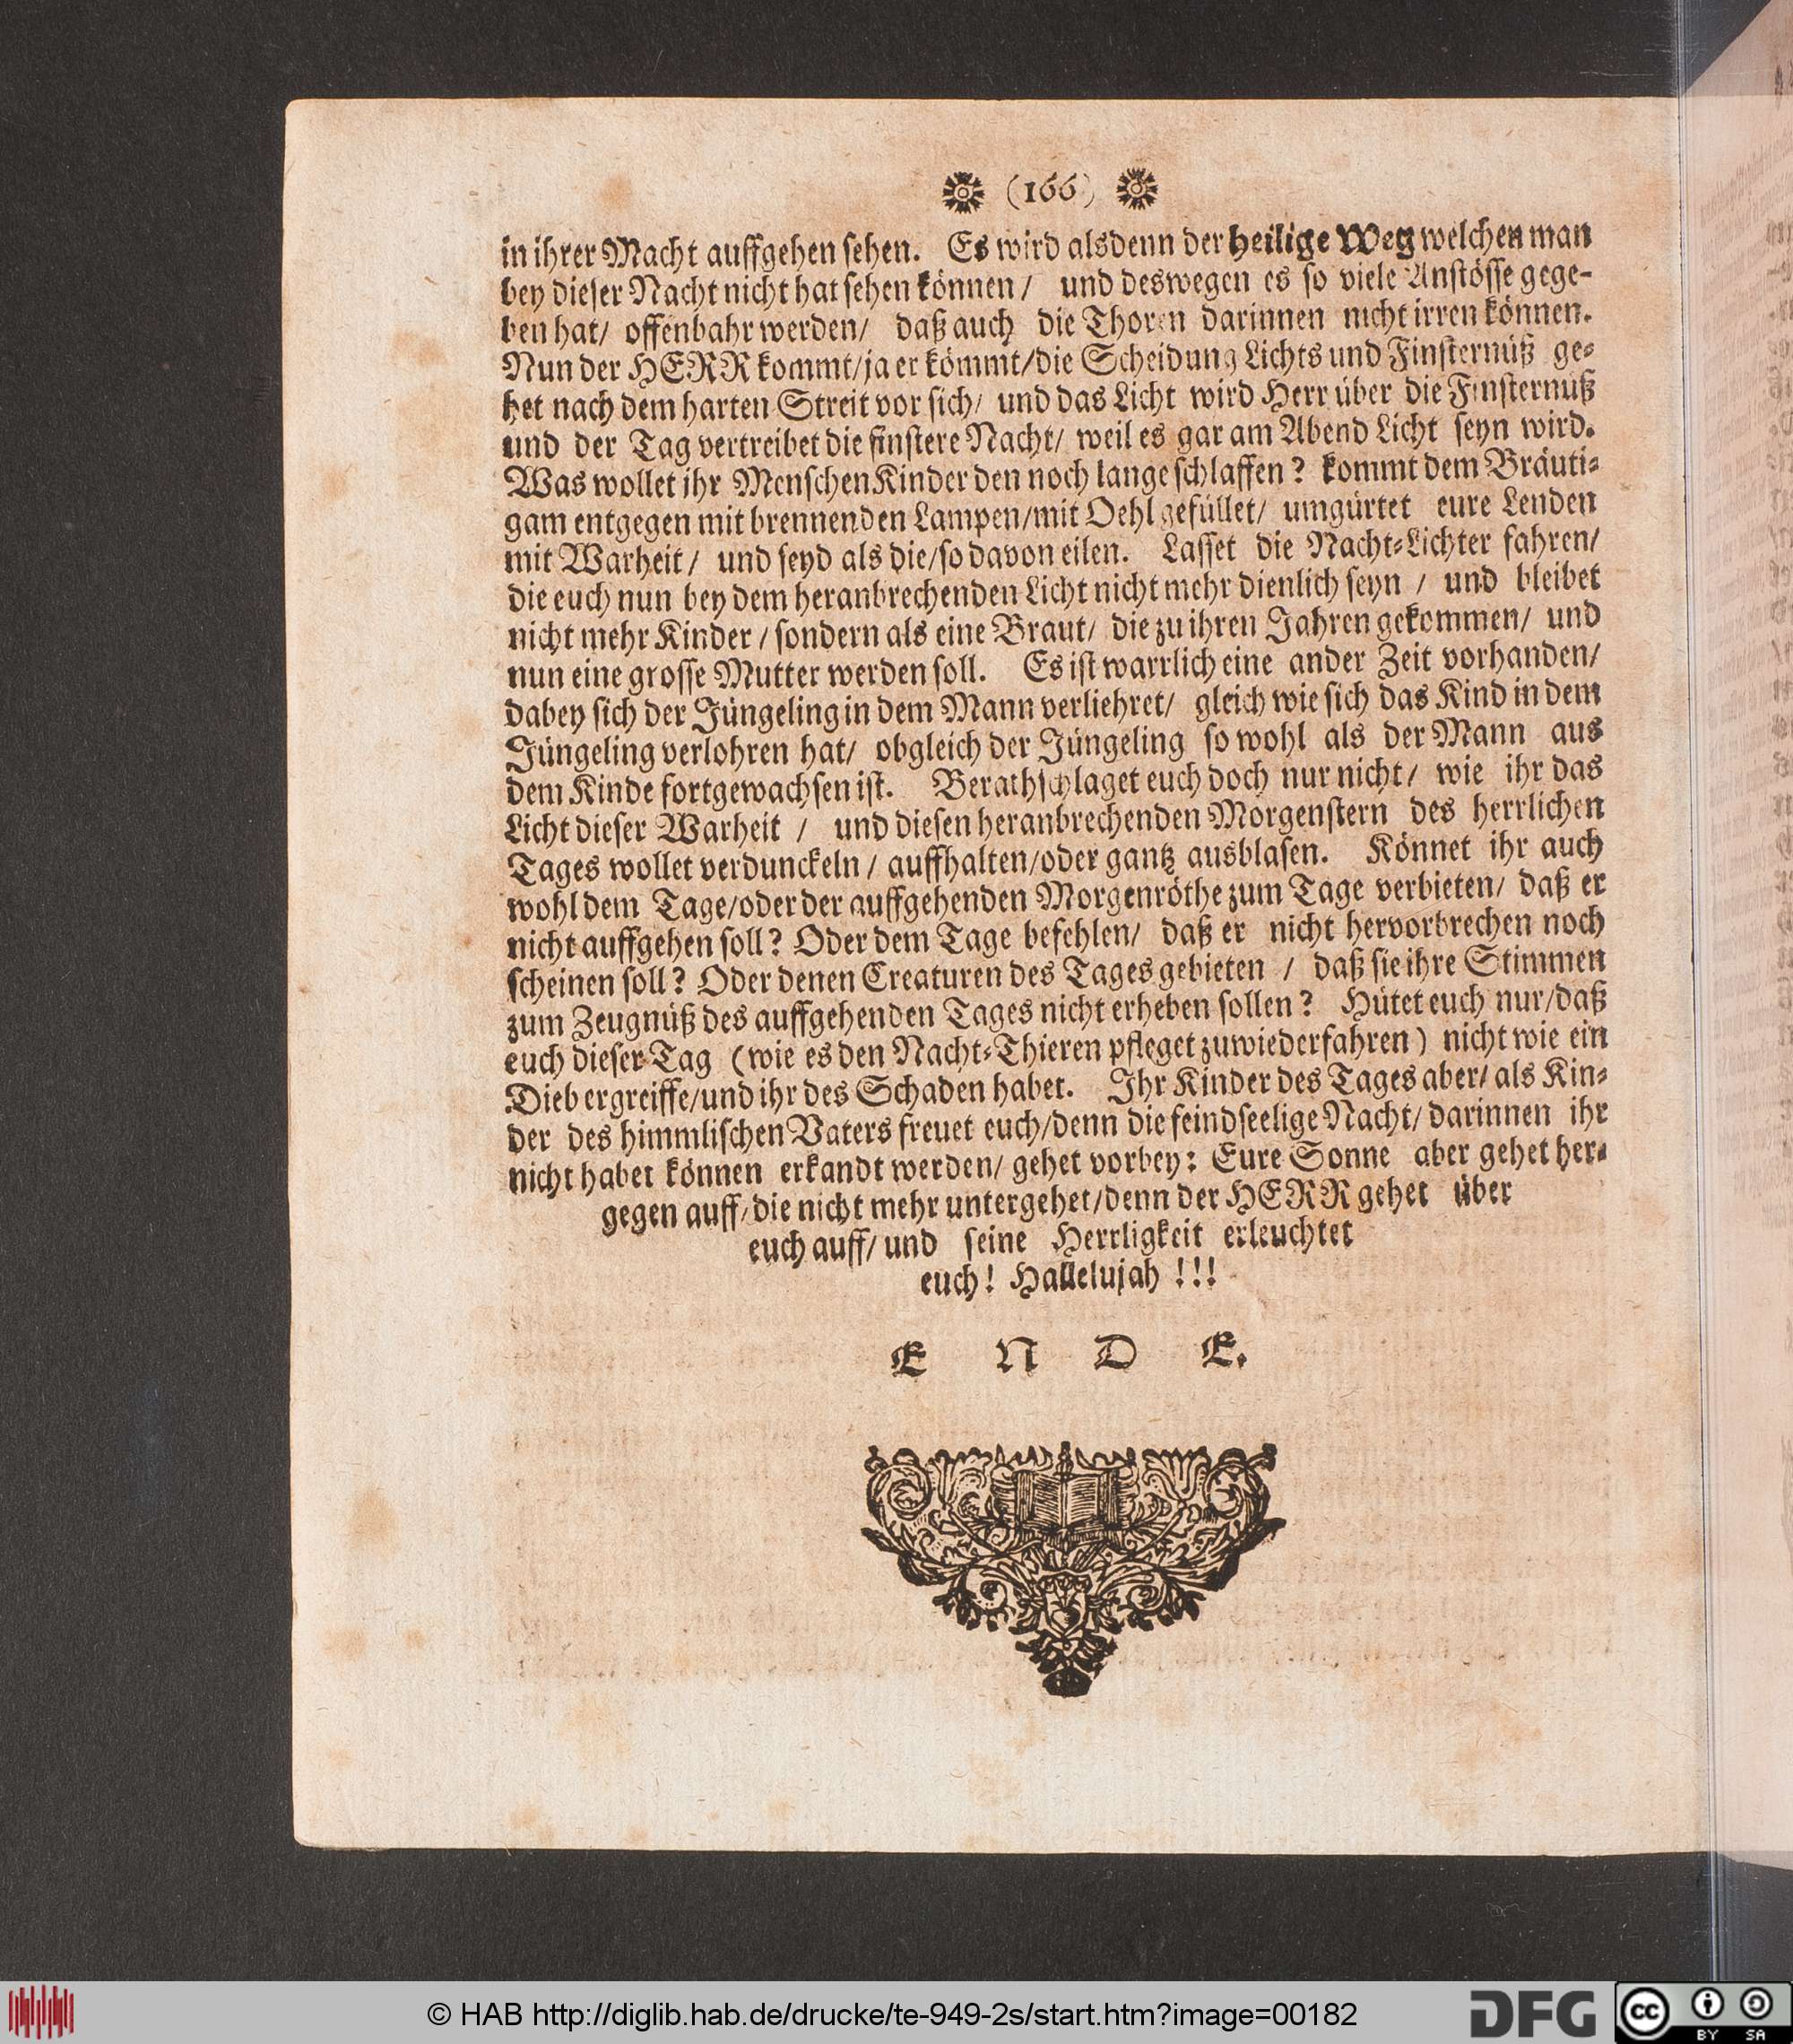 (166)
in ihrer Macht auffgehen sehen. Es wird alsdenn der heilige Weg welchen man
bey dieser Nacht nicht hat sehen können / und deswegen es so viele Anstösse gege-
ben hat/ offenbahr werden/ daß auch die Thoren darinnen nicht irren können.
Nun der HERR kommt/ja er kömmt/die Scheidung Lichts und Finsternüß ge-
het nach dem harten Streit vor sich/ und das Licht wird Herr über die Finsternüß
und der Tag vertreibet die finstere Nacht/ weil es gar am Abend Licht seyn wird.
Was wollet ihr MenschenKinder den noch lange schlaffen? kommt dem Bräuti-
gam entgegen mit brennenden Lampen/mit Oehl gefüllet/ umgürtet eure Lenden
mit Warheit/ und seyd als die/so davon eilen. Lasset die Nacht-Lichter fahren/
die euch nun bey dem heranbrechenden Licht nicht mehr dienlich seyn / und bleibet
nicht mehr Kinder / sondern als eine Braut/ die zu ihren Jahren gekommen/ und
nun eine grosse Mutter werden soll. Es ist warrlich eine ander Zeit vorhanden/
dabey sich der Jüngeling in dem Mann verliehret/ gleich wie sich das Kind in dem
Jüngeling verlohren hat/ obgleich der Jüngeling so wohl als der Mann aus
dem Kinde fortgewachsen ist. Berathschlaget euch doch nur nicht/ wie ihr das
Licht dieser Warheit / und diesen heranbrechenden Morgenstern des herrlichen
Tages wollet verdunckeln / auffhalten/oder gantz ausblasen. Könnet ihr auch
wohl dem Tage/oder der auffgehenden Morgenröthe zum Tage verbieten/ daß er
nicht auffgehen soll? Oder dem Tage befehlen/ daß er nicht hervorbrechen noch
scheinen soll? Oder denen Creaturen des Tages gebieten / daß sie ihre Stimmen
zum Zeugnüß des auffgehenden Tages nicht erheben sollen? Hütet euch nur/daß
euch dieser Tag (wie es den Nacht-Thieren pfleget zuwiederfahren) nicht wie ein
Dieb ergreiffe/und ihr des Schaden habet. Ihr Kinder des Tages aber/ als Kin-
der des himmlischen Vaters freuet euch/denn die feindseelige Nacht/ darinnen ihr
nicht habet können erkandt werden/ gehet vorbey: Eure Sonne aber gehet her-
gegen auff/die nicht mehr untergehet/denn der HERR gehet über
euch auff/ und seine Herrligkeit erleuchtet
euch! Hallelujah !!!
E N D E.
© HAB http://diglib.hab.de/drucke/te-949-2s/start.htm?image=00182
DFG
cc BY SA